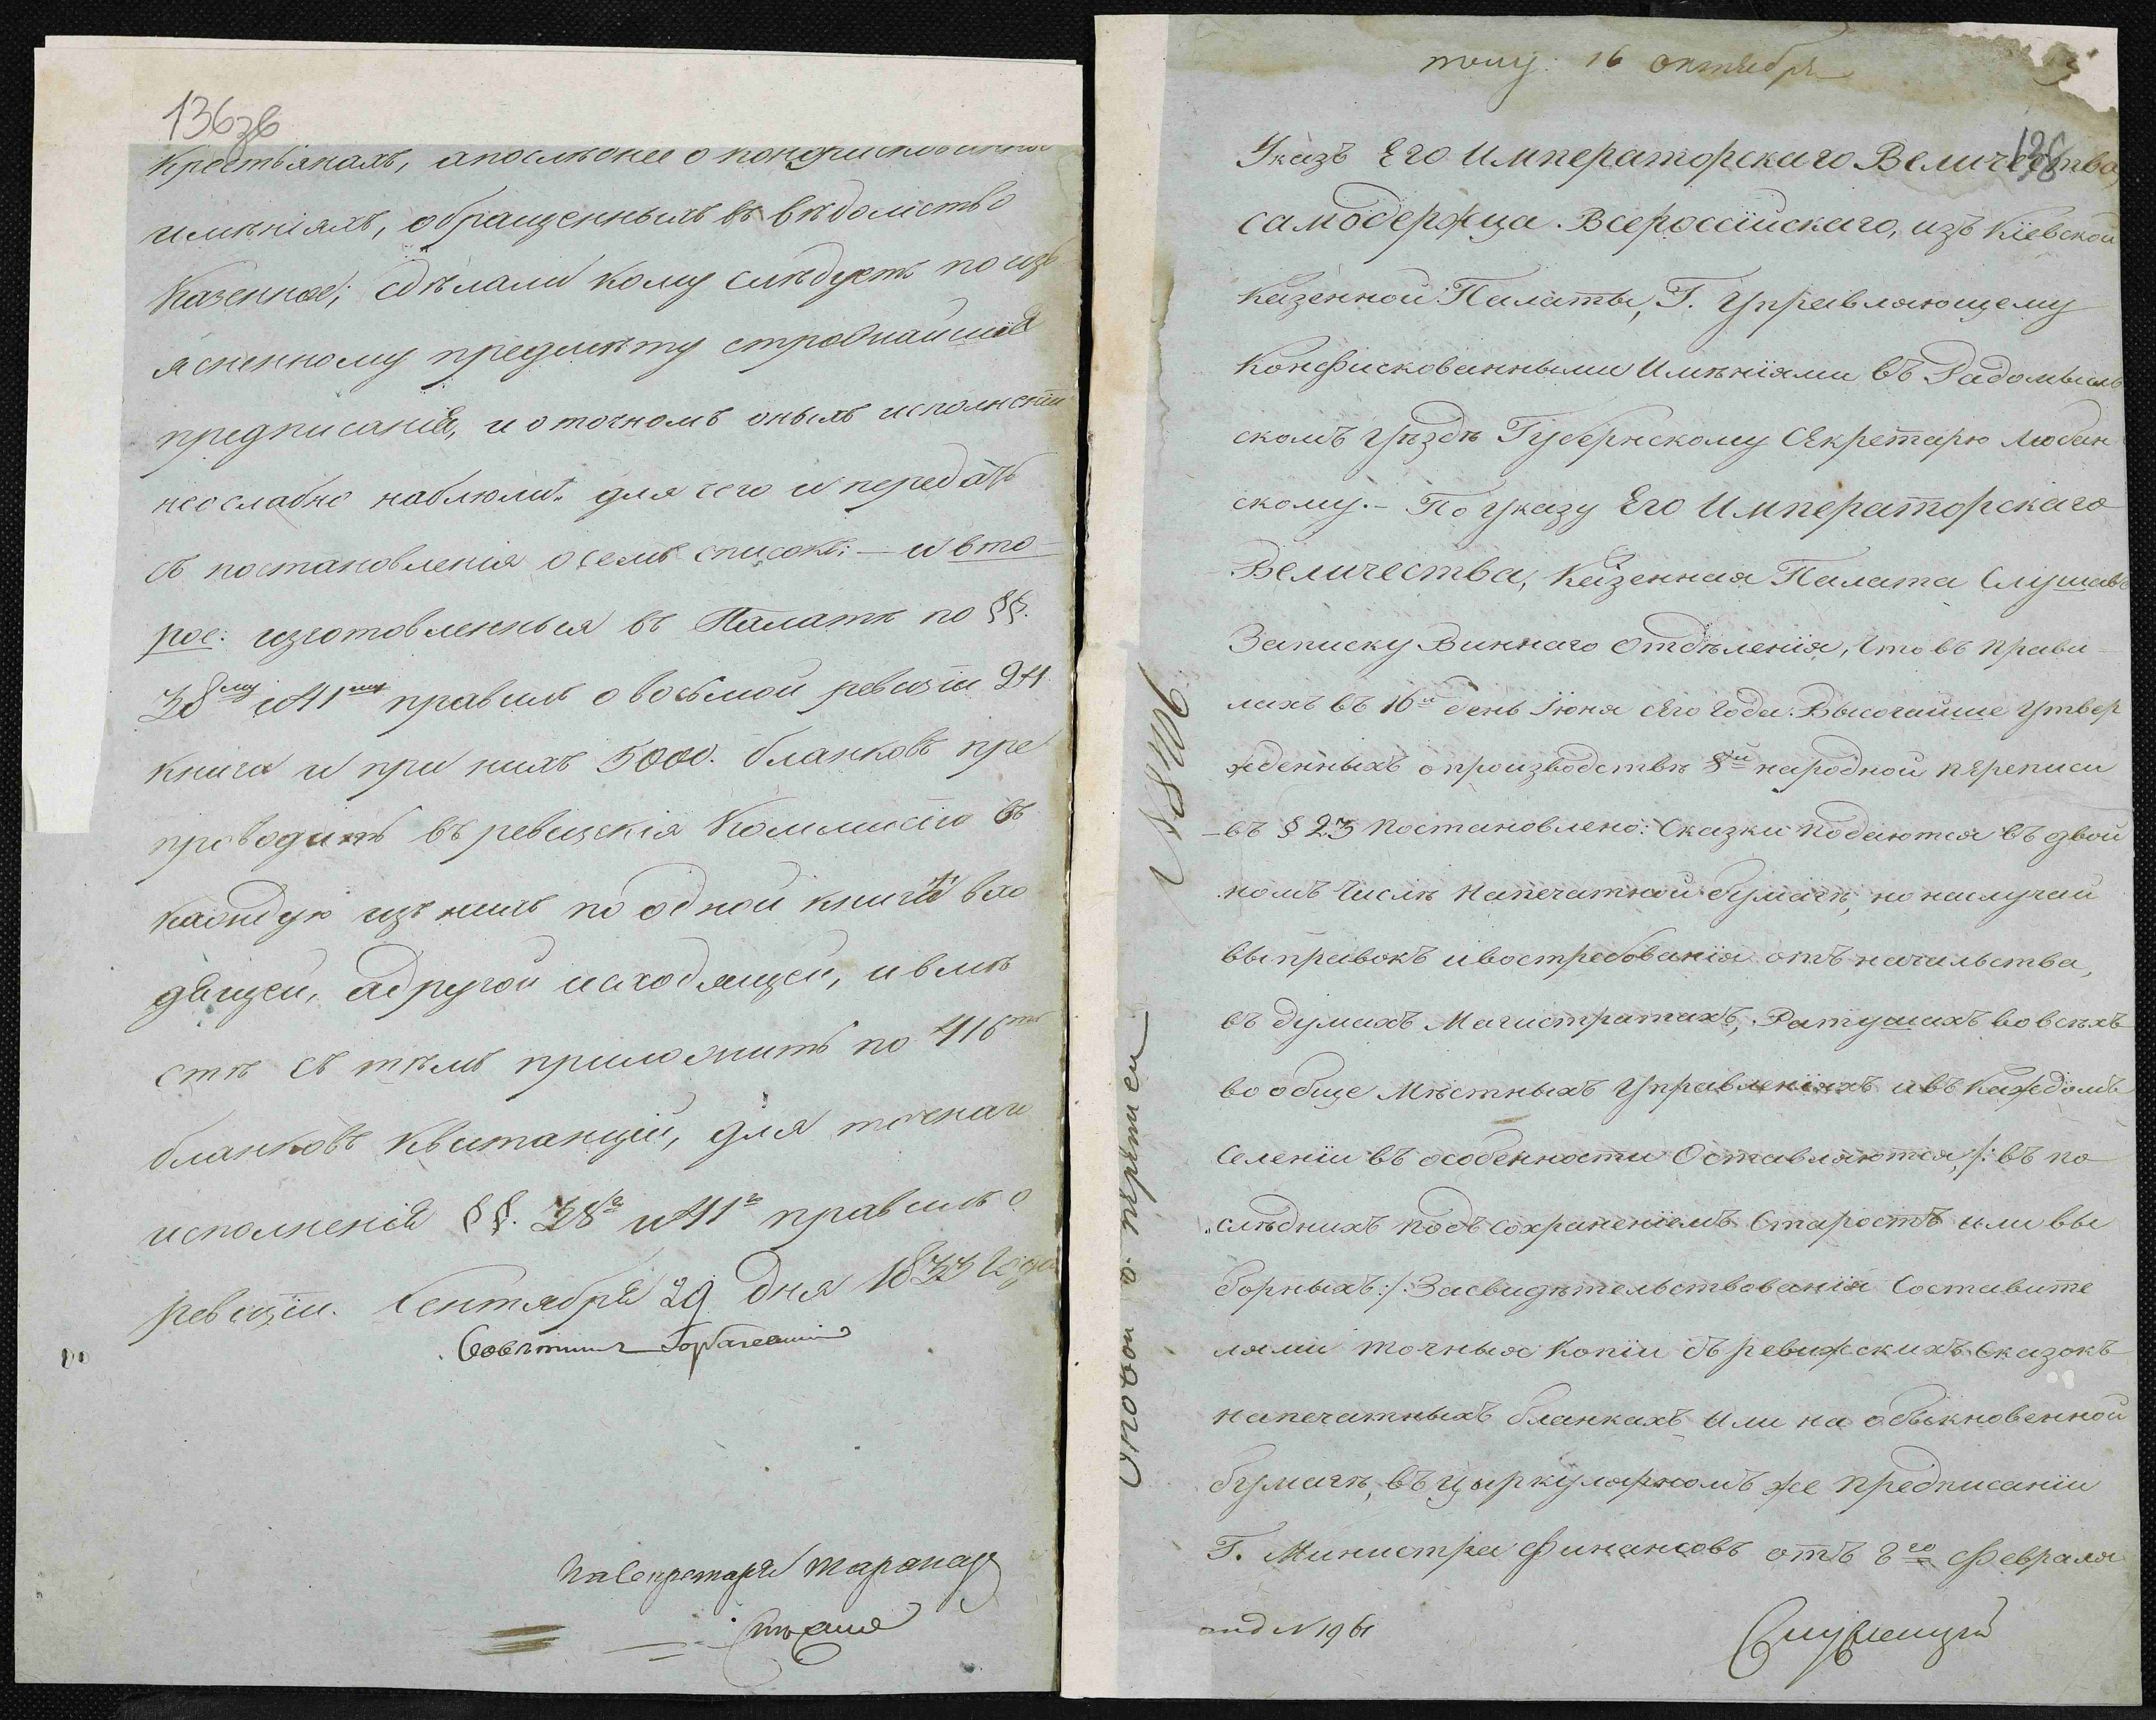 136 зв
крестьянахъ, а последнее о конфискованныхъ
имѣніяхъ, обращенныхъ въ вѣдомство
Казенное; сдѣлали кому слѣдуетъ по изъ
ясненному предмѣту строжайшія
предписанія, и о точномъ оныхъ исполненіи
неослабно наблюли. для чего и передать
съ постановленія о семъ списокъ: — и вто
рое: изготовленныя въ Палатѣ по §§.
38му и 41му правилъ о восьмой ревизіи 24
книги и при нихъ 5000. бланковъ пре
проводить въ ревизскія Коммисіи въ
каждую изъ нихъ по одной книгѣ вхо
дящей, а другой исходящей, и вмѣ
стѣ съ тѣмъ приложить по 416ть
бланковъ Квитанцій, для точнаго
исполненія §§. 38го и 41го правилъ о
ревизіи. Сентября 29 дня 1833 Года
Совѣтникъ Горбачевскій
За Секретаря
полу: 16 октября
136
Указъ Его Императорскаго Величества
самодержца Всероссійскаго, изъ Кіевской
Казенной Палаты, Г. Управляющему
Конфискованными Имѣніями въ Радомысль
скомъ Уѣздѣ Губернскому Секретарю Любин
скому. – По указу Его Императорскаго
Величества, Казенная Палата Слушавъ
Записку Виннаго Отдѣленія, что въ прави
лахъ въ 16й день Іюня сего года Высочайше Утвер
жденныхъ о производствѣ 8й народной переписи
въ § 23 постановлено: Сказки подаются въ двой
номъ числѣ на печатной бумагѣ, но на случай
выправокъ и востребованія отъ начальства,
въ думахъ Магистратахъ, Ратушахъ во всѣхъ
вообще Мѣстныхъ Управленіяхъ и въ каждомъ
Селеніи въ особенности Оставляются /: въ по
слѣднихъ подъ сохраненіемъ Старостъ или вы
борныхъ :/ Засвидѣтельствованія Составите
лями точныя копіи съ ревижскихъ Сказокъ
на печатныхъ бланкахъ или на обыкновенной
бумагѣ, въ циркулярномъ же предписаніи
Г. Министра Финансовъ отъ 8го Февраля